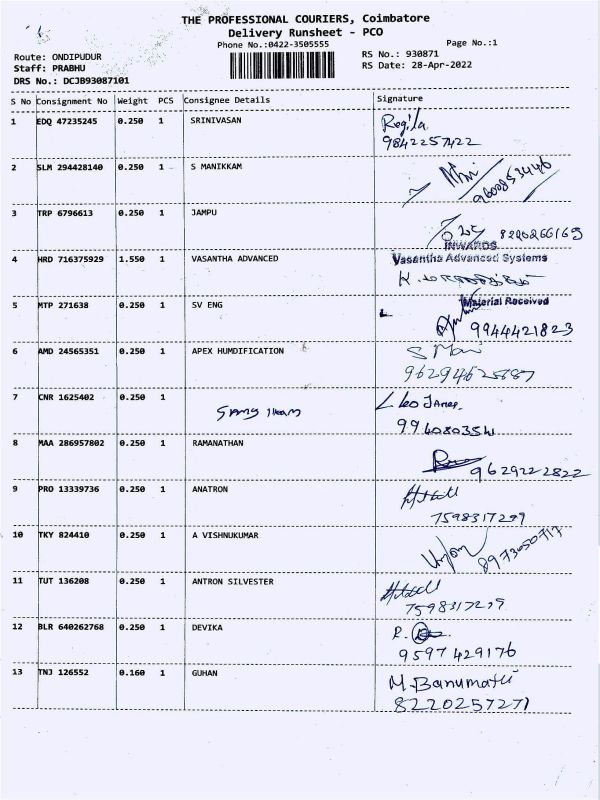 THE PROFESSIONAL COURIERS, Coimbatore
Delivery Runsheet - PCO
Phone No.:0422-3505555
Page No.:1
Route: ONDIPUDUR
RS No.: 930871
Staff: PRABHU
RS Date: 28-Apr-2022
DRS No.: DCJB93087101
S No Consignment No Weight PCS Consignee Details Signature
1 EDQ 47235245 0.250 1 SRINIVASAN Regila
9842257422
2 SLM 294428140 0.250 1 S MANIKKAM
3 TRP 6796613 0.250 1 JAMPU
8220266169
INWARDS
4 HRD 716375929 1.550 1 VASANTHA ADVANCED Vasantha Advanced Systems
5 MTP 271638 0.250 1 SV ENG Material Received
9944421823
6 AMD 24565351 0.250 1 APEX HUMDIFICATION S Mani
7 CNR 1625402 0.250 1
8 MAA 286957802 0.250 1 RAMANATHAN
9629222822
9 PRO 13339736 0.250 1 ANATRON
10 TKY 824410 0.250 1 A VISHNUKUMAR
11 TUT 136208 0.250 1 ANTRON SILVESTER
12 BLR 640262768 0.250 1 DEVIKA
9597429176
13 TNJ 126552 0.160 1 GUHAN M. Banumathi
8220257271